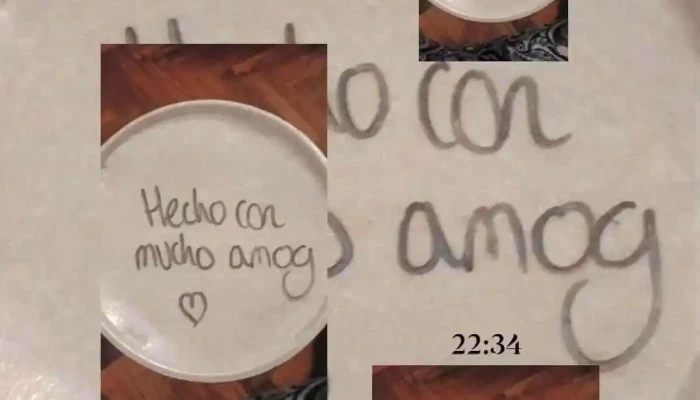 Hecho con
mucho amog
con
amog
22:34